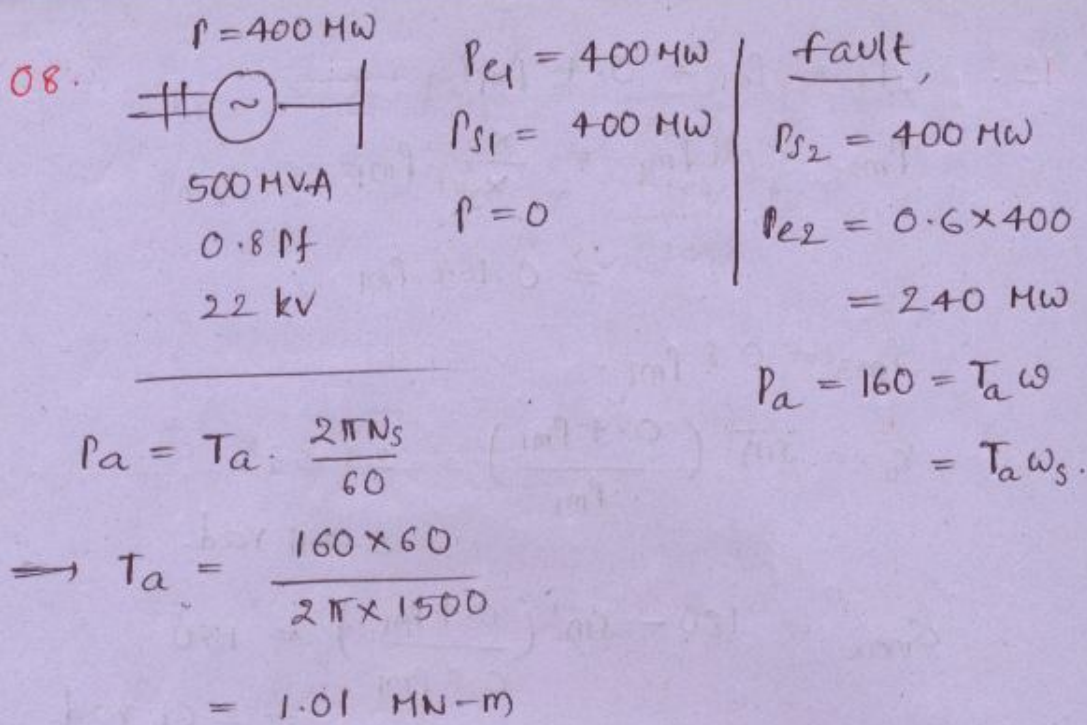 P = 400 MW
08.
~
500 MVA
0.8 Pf
22 kv
Pe1 = 400 MW
Ps1 = 400 MW
P = 0
fault,
Ps2 = 400 MW
Pe2 = 0.6 × 400
= 240 MW
Pa = 160 = Ta ω
= Ta ωs.
Pa = Ta. 2πNs / 60
⟹ Ta = 160 × 60 / 2π × 1500
= 1.01 MN-m